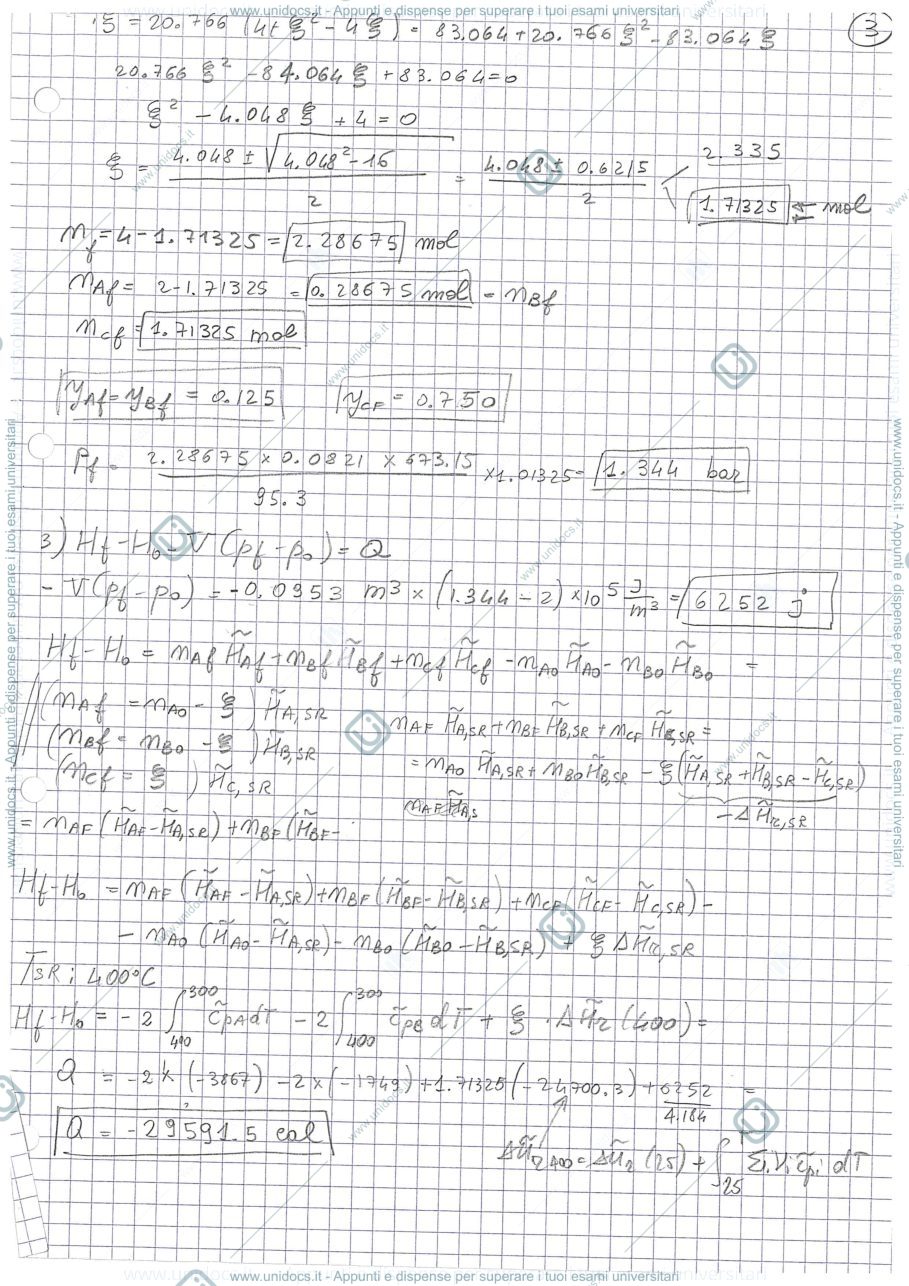 www.unidocs.it - Appunti e dispense per superare i tuoi esami universitari
3
ξ = 20.766 (4+ξ² - 4ξ) = 83.064 + 20.766 ξ² - 83.064 ξ
20.766 ξ² - 84.064 ξ + 83.064 = 0
ξ² - 4.048 ξ + 4 = 0
ξ = (4.048 ± √(4.048² - 16)) / 2 = (4.048 ± 0.6215) / 2
2.335
1.71325 ⇐ mol
n_f = 4 - 1.71325 = 2.28675 mol
n_Af = 2 - 1.71325 = 0.28675 mol = n_Bf
n_Cf = 1.71325 mol
y_Af = y_Bf = 0.125 y_CF = 0.750
P_f = (2.28675 × 0.0821 × 673.15) / 95.3 × 1.01325 = 1.344 bar
3) H_f - H_0 - V (p_f - p_0) = Q
- V (p_f - p_0) = - 0.0953 m³ × (1.344 - 2) × 10⁵ J/m³ = 6252 j
H_f - H_0 = n_Af H̃_Af + n_Bf H̃_Bf + n_Cf H̃_Cf - n_A0 H̃_A0 - n_B0 H̃_B0 =
(n_Af = n_A0 - ξ) H̃_A,SR
(n_Bf = n_B0 - ξ) H̃_B,SR
(n_Cf = ξ) H̃_C,SR
n_AF H̃_A,SR + n_BF H̃_B,SR + n_CF H̃_C,SR =
= n_A0 H̃_A,SR + n_B0 H̃_B,SR - ξ (H̃_A,SR + H̃_B,SR - H̃_C,SR)
- ΔH̃_r,SR
n_AF H̃_A,S
= n_AF (H̃_AF - H̃_A,SR) + n_BF (H̃_BF -
H_f - H_0 = n_AF (H̃_AF - H̃_A,SR) + n_BF (H̃_BF - H̃_B,SR) + n_CF (H̃_CF - H̃_C,SR) -
- n_A0 (H̃_A0 - H̃_A,SR) - n_B0 (H̃_B0 - H̃_B,SR) + ξ ΔH̃_r,SR
T_SR : 400°C
H_f - H_0 = - 2 ∫_400^300 c̃_pA dT - 2 ∫_400^300 c̃_pB dT + ξ · ΔH̃_r (400) =
Q = -2 × (-3867) - 2 × (-1749) + 1.71325 (-24700.3) + 6252/4.184 =
Q = - 29591.5 cal
ΔH̃_r,400 = ΔH̃_r (25) + ∫_25^T Σ_i ν_i c̃_pi dT
www.unidocs.it - Appunti e dispense per superare i tuoi esami universitari